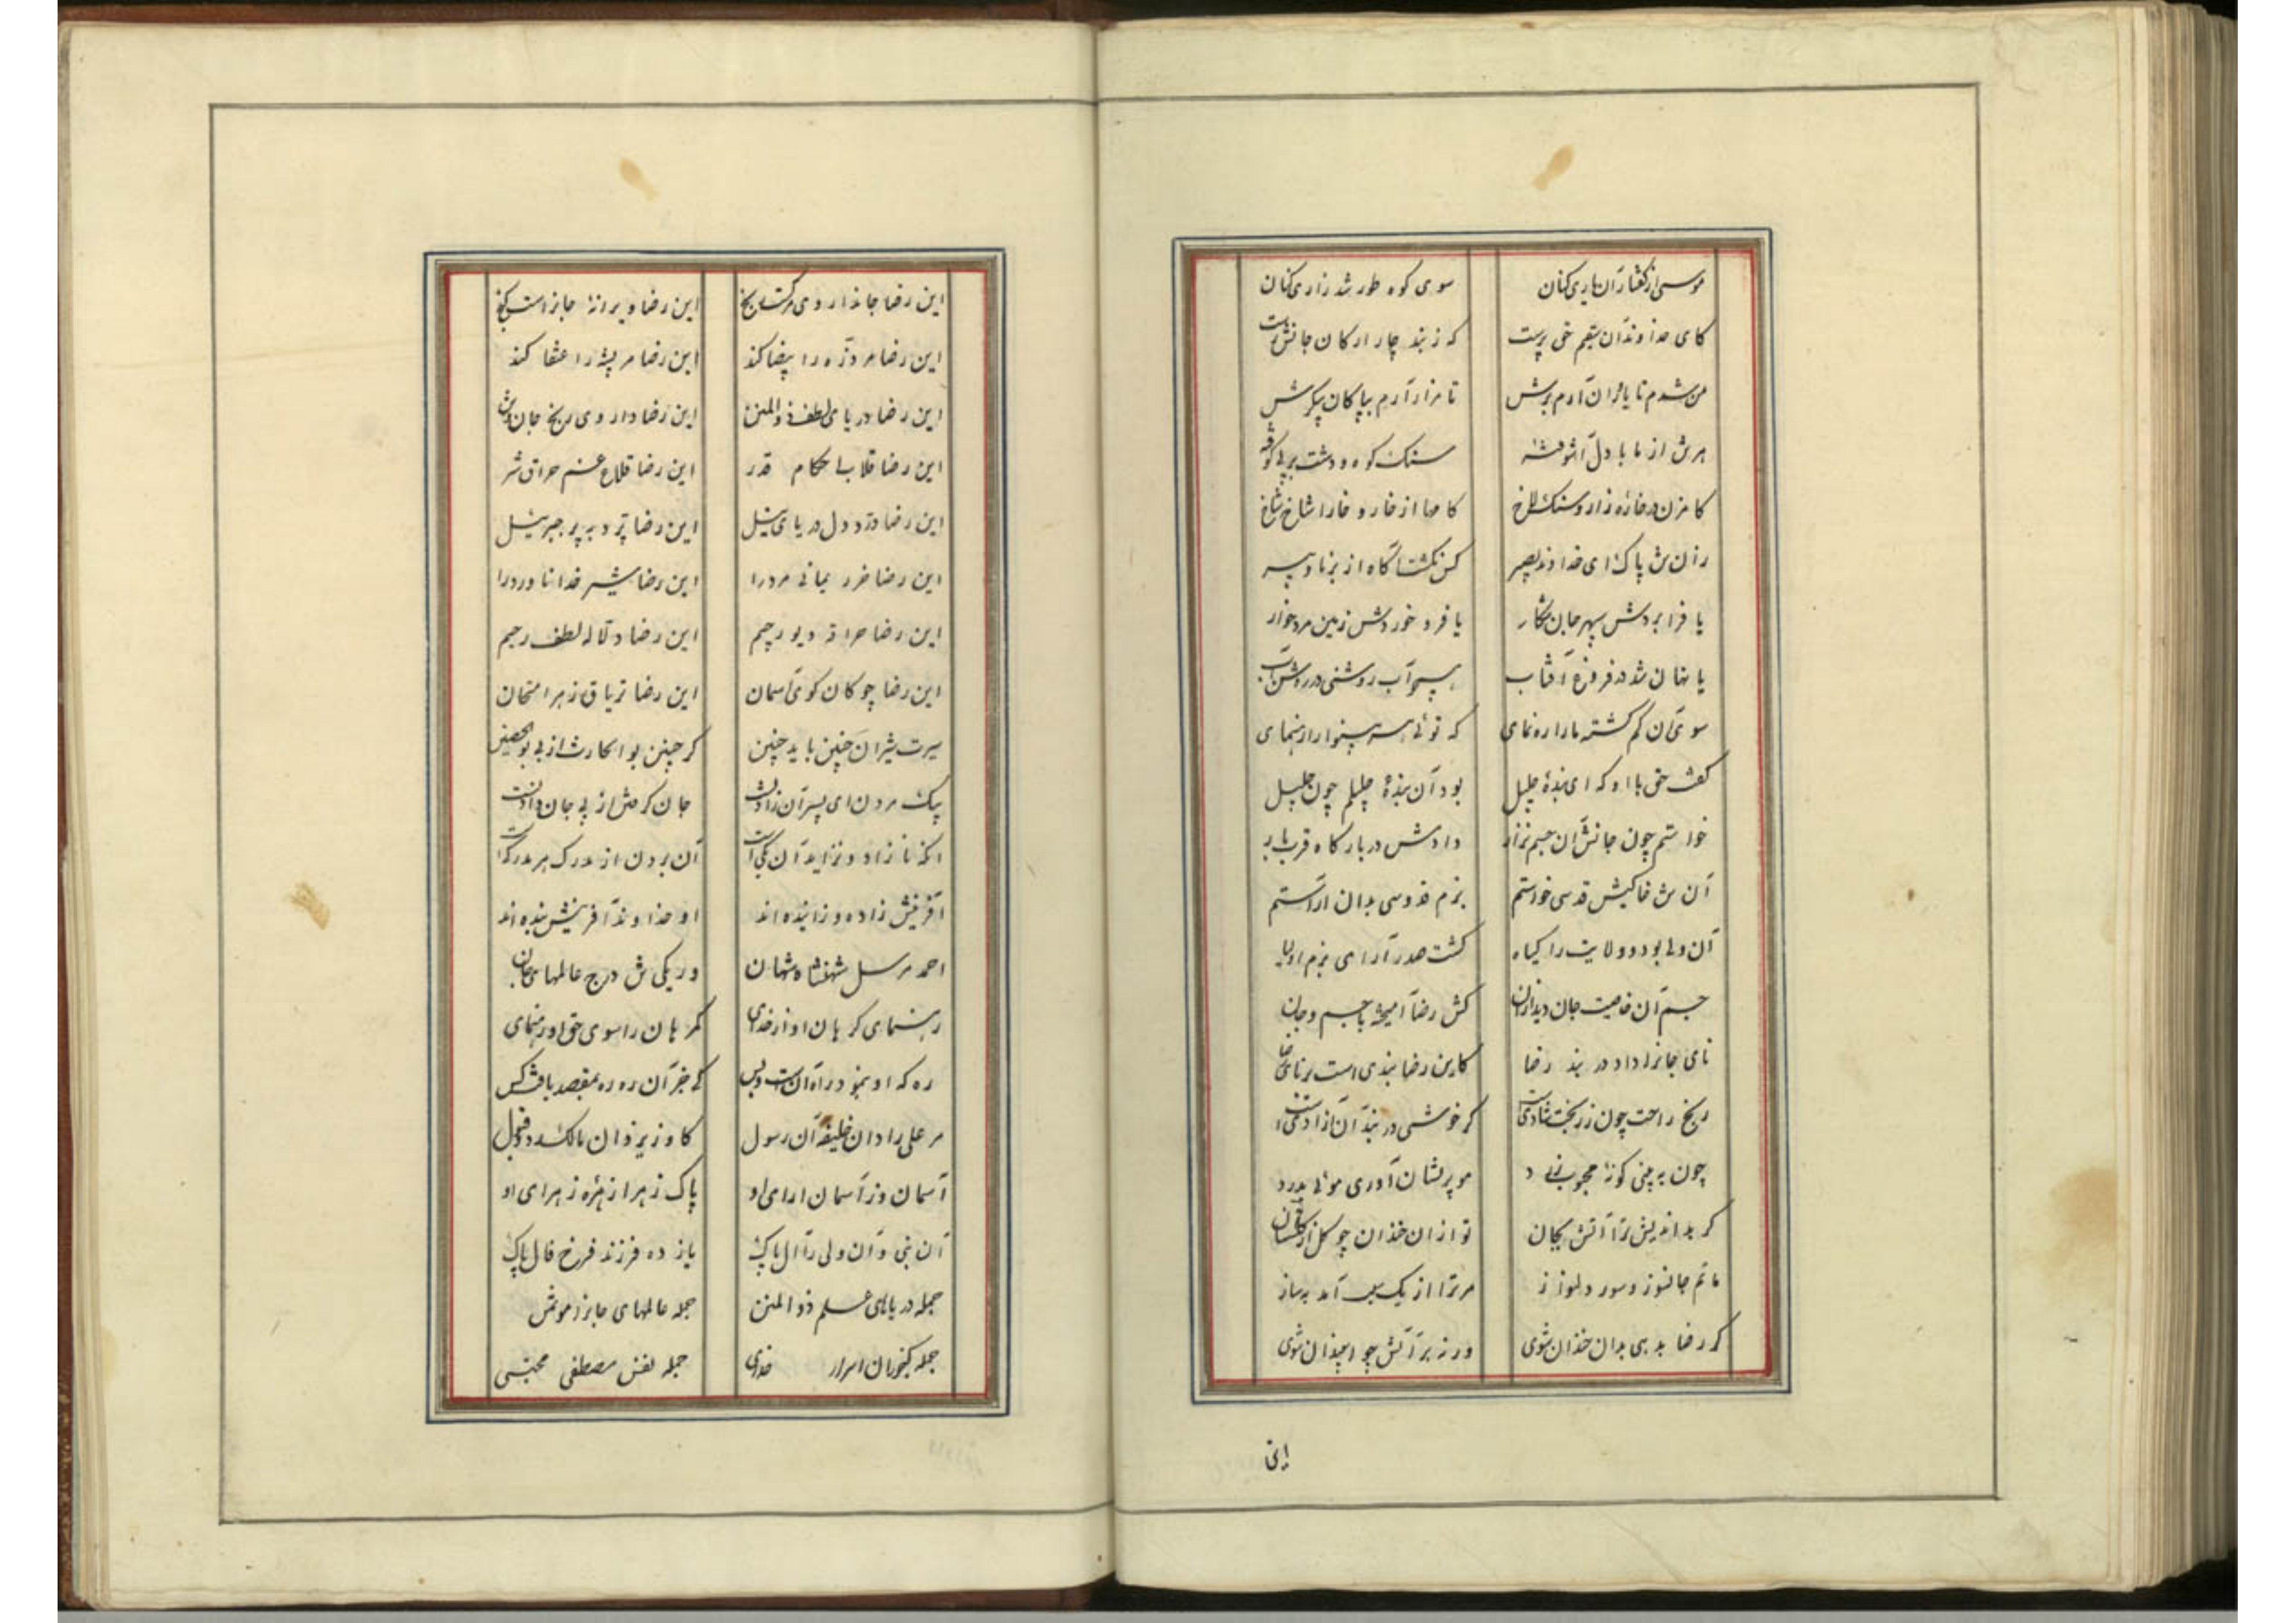 موسی از گفتار آن یاری کنان سوی کوه طور شد زاری کنان
کای خداوند آن سقیم حق پرست که ز بند چار ارکان جانش رست
من شدم تا یاوران آرم برش تا مزار آرم بپاکان پیکرش
برش از ما با دل سنک کوه و دشت بر پی کوفته
کامزن در خاره زار و سنک لاخ کامها از خار و خارا شاخ شاخ
زان تن پاک ای خداوند بصیر کس نکشت آگاه از برنا و پیر
یا فرا بردش سپهر جان شکار یا فرو خوردش زمین مرد خوار
یا نهان شد در فروغ آفتاب آب روشنی در روشن آب
سوی آن کم کشته ما را ره نمای که توئی هر بینوا را رهنمای
کفت حق با او که ای بنده جلیل بود آن بنده جلیلم چون خلیل
خواستم چون جانش آن جسم نزار دادش در بارکاه قرب بار
آن تن خاکیش قدسی خواستم بزم فردوسی بدان آراستم
آن ولی بود و ولایت را کیاه کشت صدر آرای بزم اولیا
جسم آن خاصیت جان دید ازان کش رضا آمیخته با جسم و جان
نای جانرا داد در بند رضا کاین رضا بندی است بر نای
رنج راحت چون ز رنجت شادی است کر خوشی در بند آن آزادی است
چون به بینی کوزهٔ محبوب مو پریشان آوری موئی بدرد
کر بد اندیش ترا آتش بجان تو ازان خندان چو کل از
ماتم جانسوز و سور دلنواز مر ترا از یک آید بساز
کر رضا بدهی بدان خندان شوی ور نه بر آتش چو اسپندان شوی
این
این رضا جاندار وی مرکست رنج این رضا ویرانهٔ جانراست کنج
این رضا مر ذره را بیضا کند این رضا مر پشه را عنقا کند
این رضا دریای لطف ذوالمنن این رضا داروی رنج جان و تن
این رضا قلاب احکام قدر این رضا قلاع غم حراق شر
این رضا دزدد دل دریای نیل این رضا پرد به پر جبرئیل
این رضا خرد یمانی مرد را این رضا شیر خدا ناورد را
این رضا حراقه دیو رجیم این رضا دلاله لطف رحیم
این رضا چوکان کوی آسمان این رضا تریاق زهر امتحان
سیرت شیران چنین باید چنین کر چنین بو
پیک مردن ای پسر آن زادنست جان کرمش از پی جان دادنست
آنکه نا زاد و نزاید آن یکی است آن بردن از مدرک هر مدرکی است
آفرینش زاده و زاینده اند او خداوند آفرینش بنده اند
احمد مرسل شهنشاه شهان در یکی تن درج عالمهای جان
رهنمای کمرهان او از خدای کمرهان را سوی حق او رهنمای
ره که او بنمود راه آنست و بس کی جز آن ره ره بمقصد یافت کس
مر علی را دان خلیفه آن رسول
آسمان وز آسمان آرای او پاک زهرا زهره زهرای او
آن نبی و آن ولی را آل پاک یازده فرزند فرخ فال پاک
جمله دریاهای علم ذوالمنن جمله عالمهای جانرا
جمله کنجوران اسرار خدی جمله نفس مصطفی مجتبی